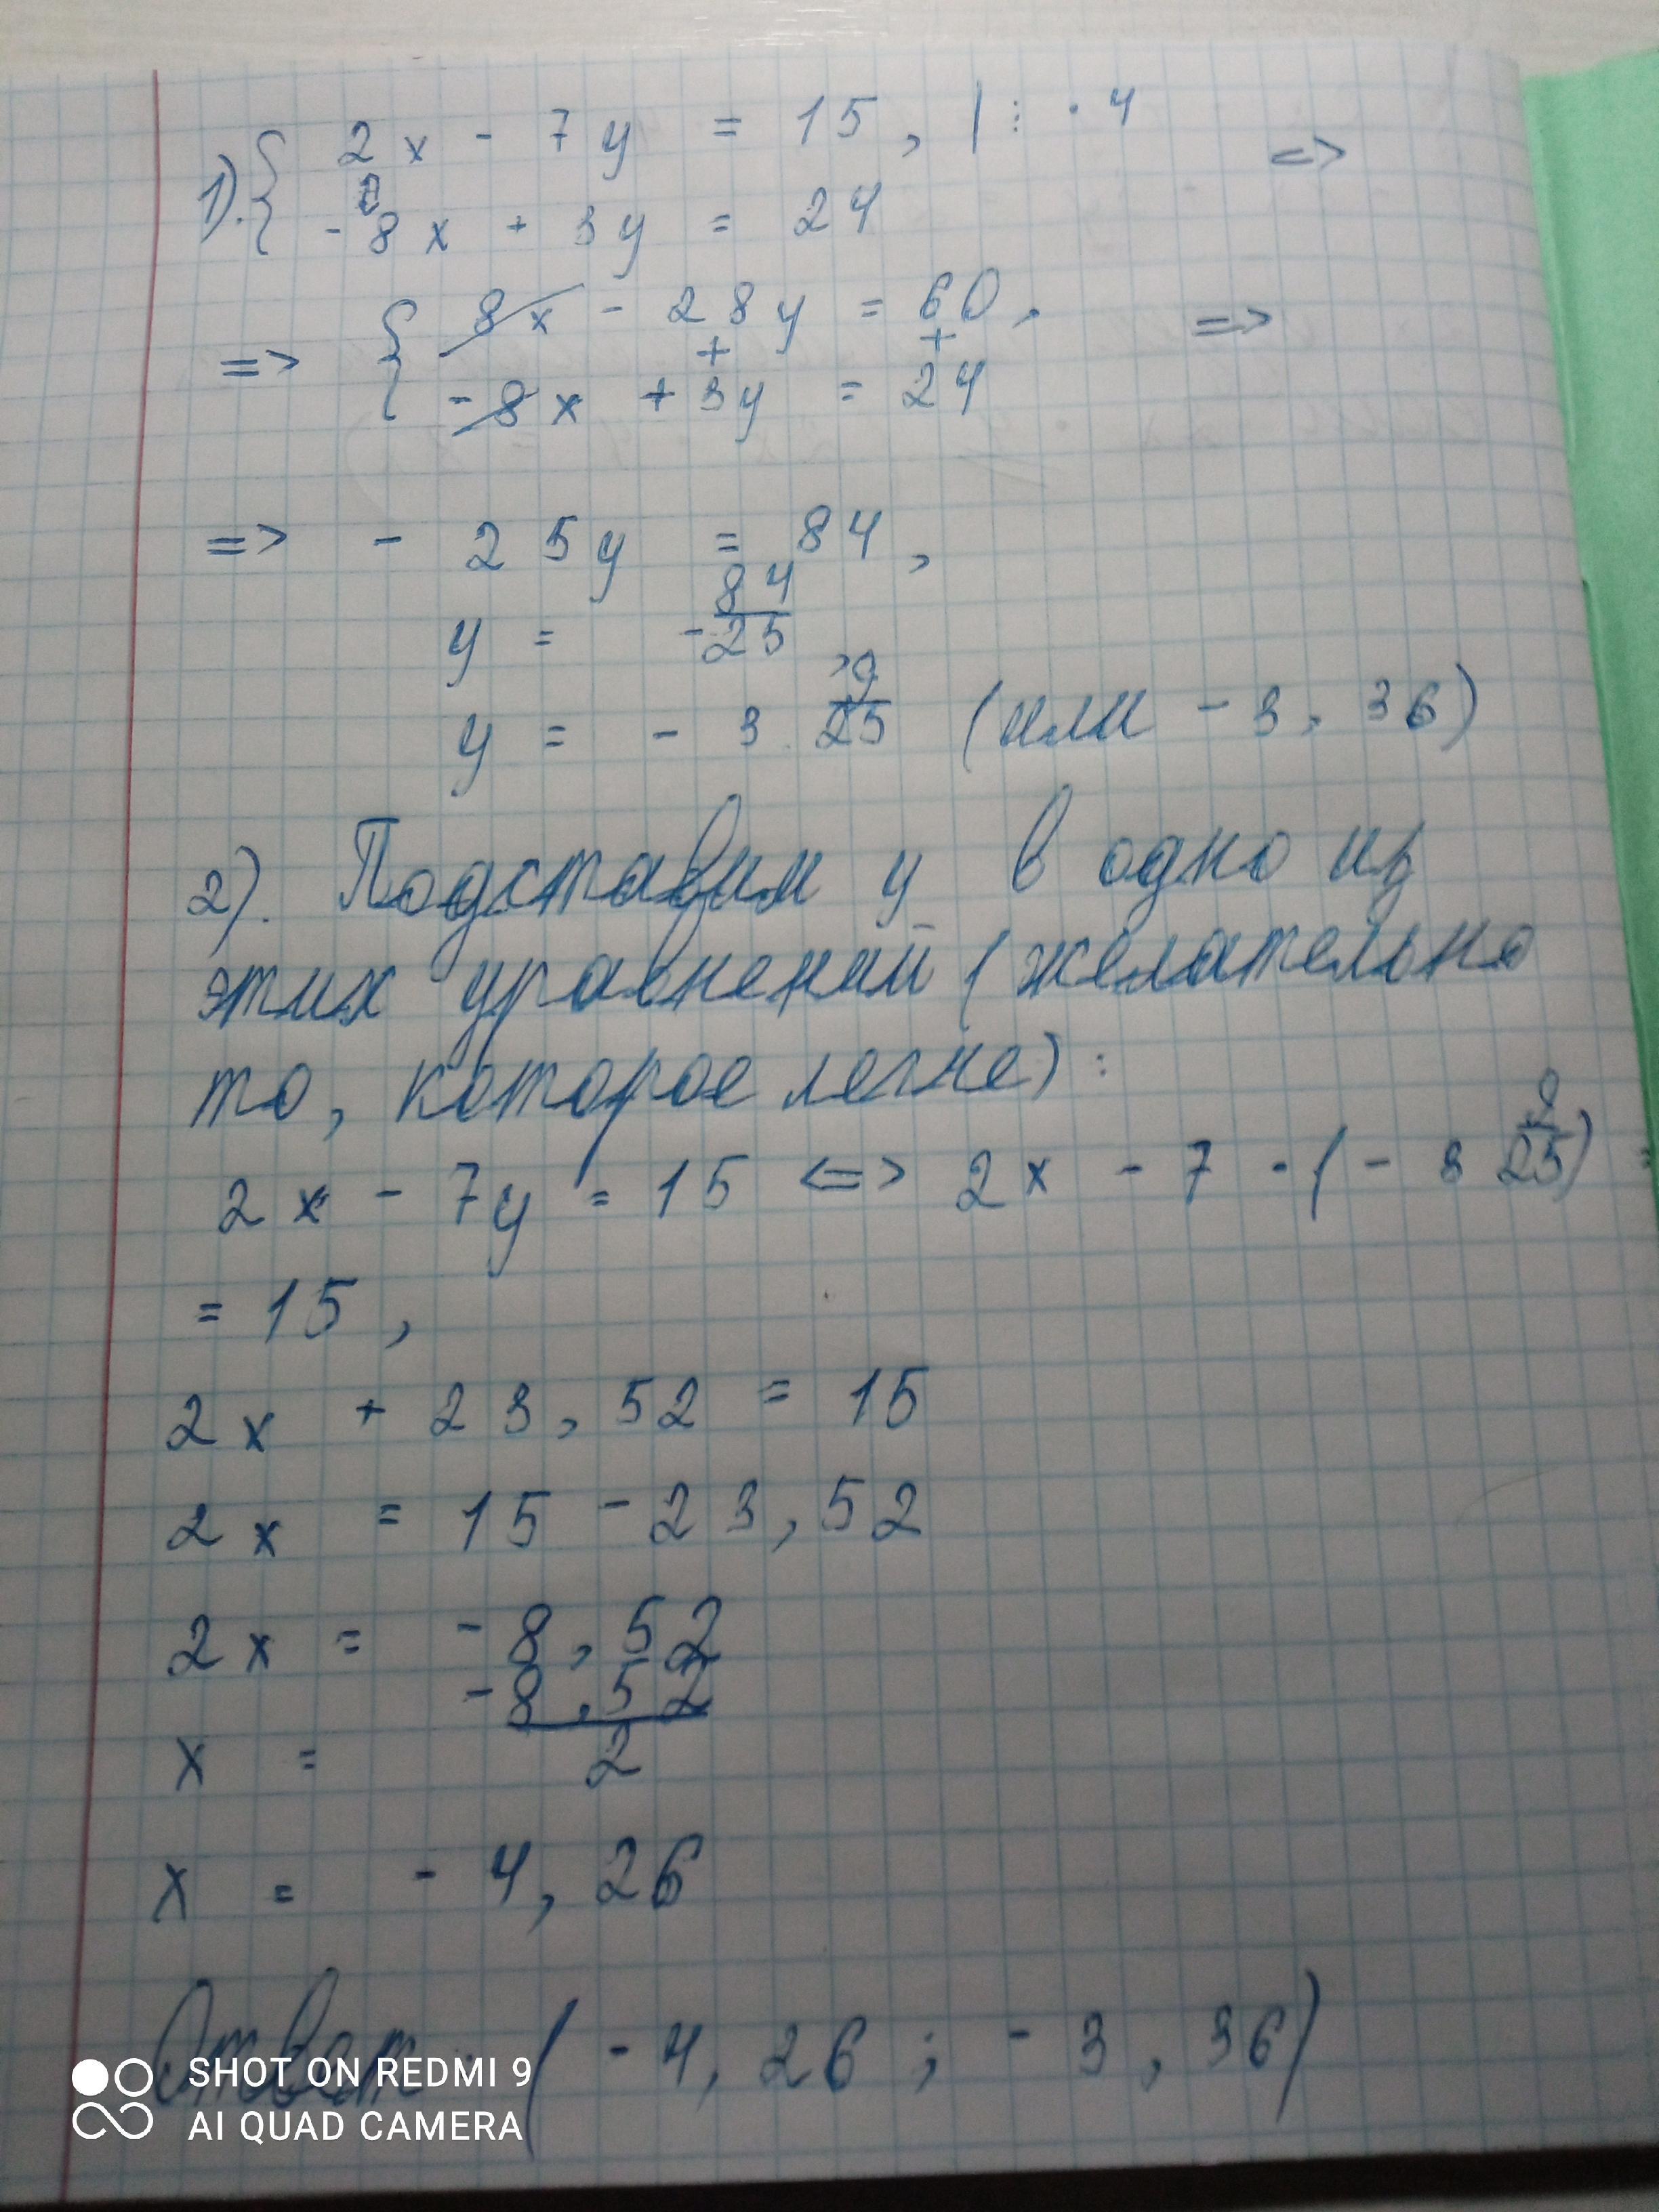 1). { 2x - 7y = 15, | : · 4 =>
- 8x + 3y = 24
=> { 8x - 28y = 60, =>
+ +
- 8x + 3y = 24
=> - 25y = 84,
y = 84/-25
y = - 3 9/25 (или - 3, 36)
2). Подставим y в одно из
этих уравнений (желательно
то, которое легче):
2x - 7y = 15 <=> 2x - 7 · (- 3 9/25) =
= 15,
2x + 23,52 = 15
2x = 15 - 23,52
2x = - 8,52
x = -8,52/2
x = - 4,26
Ответ: (- 4,26 ; - 3,36)
SHOT ON REDMI 9
AI QUAD CAMERA